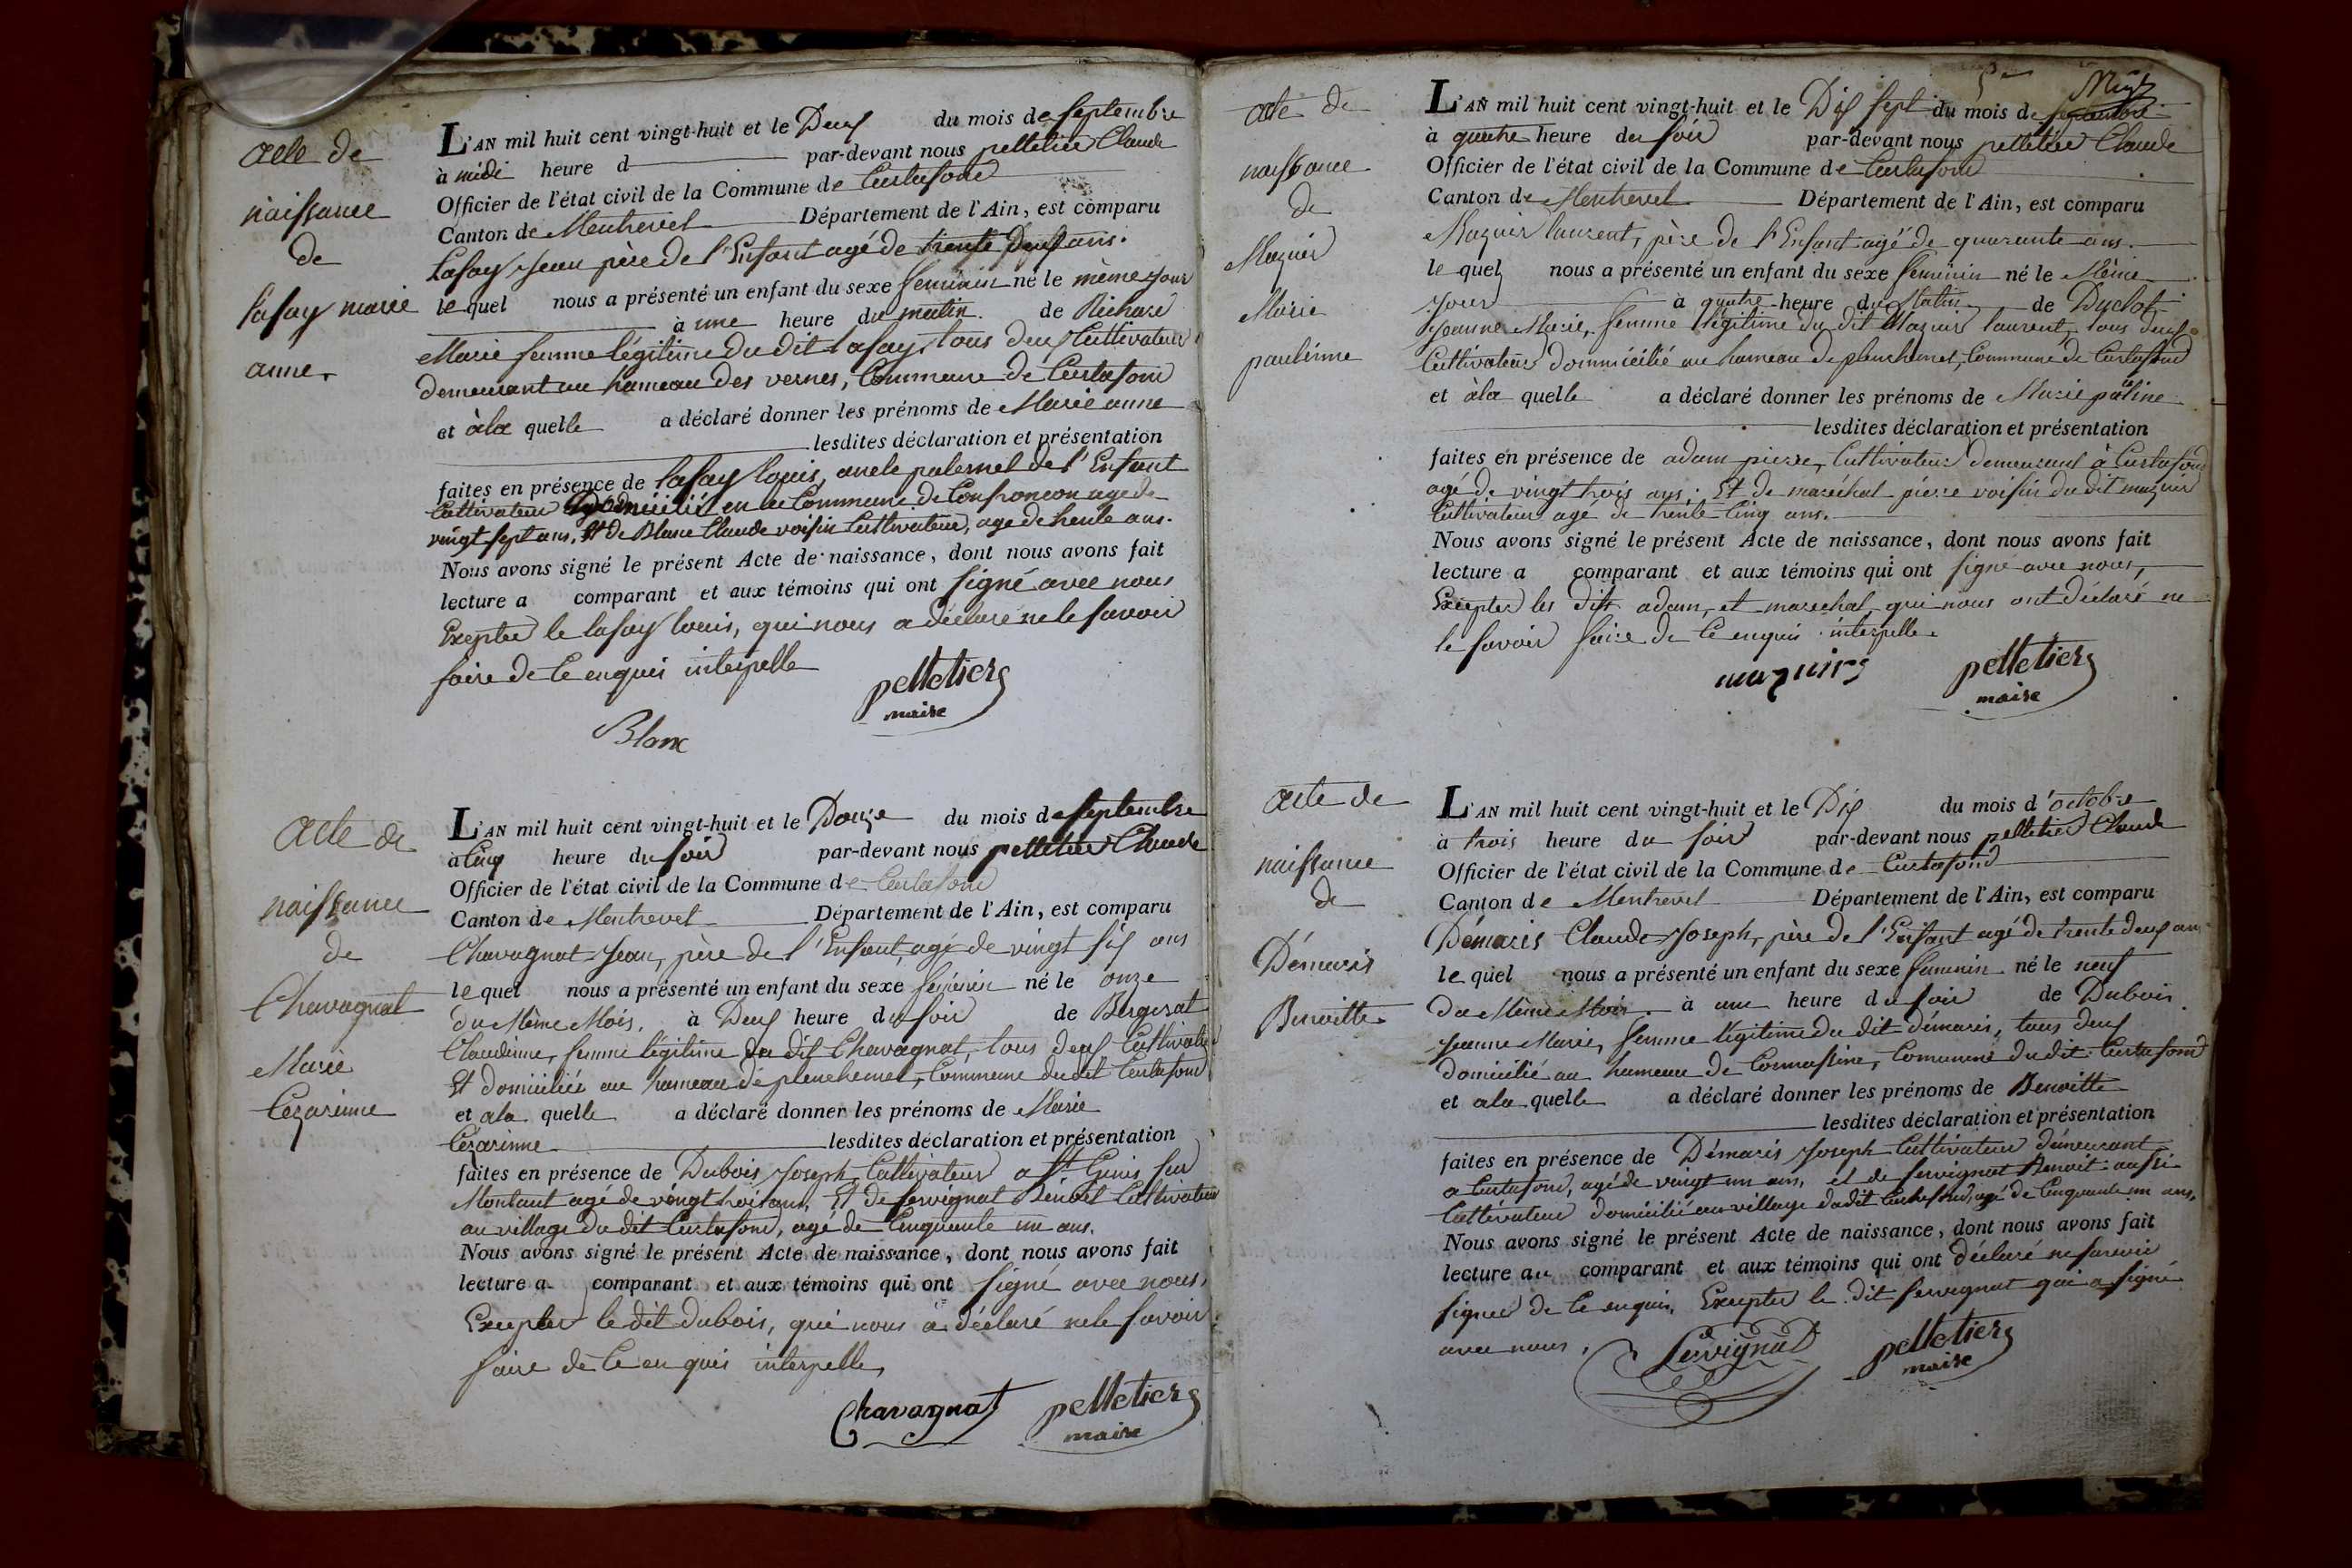 acte de
naissance
de
Lafay marie
anne.
L'AN mil huit cent vingt-huit et le Deux du mois de septembre
à midi heure d par-devant nous pelletier Claude
Officier de l'état civil de la Commune de Curtafond
Canton de Montrevel Département de l'Ain, est comparu
Lafay Jean père de l'Enfant agé de trente deux ans.
le quel nous a présenté un enfant du sexe feminin né le même jour
à une heure du matin. de Richard
Marie femme légitime du dit Lafay, tous deux Cultivateur
demeurant au hameau des vernes, Commune de Curtafond
et à la quelle a déclaré donner les prénoms de Marie anne
lesdites déclaration et présentation
faites en présence de Lafay Louis, oncle paternel de l'Enfant
Cultivateur domicilié en la Commune de Confrancon agé de
vingt sept ans, Et de Blanc Claude voisin Cultivateur, agé de trente ans.
Nous avons signé le présent Acte de naissance, dont nous avons fait
lecture a comparant et aux témoins qui ont signé avec nous
Exepter le lafay louis, qui nous a déclaré ne le savoir
faire de ce enquis interpelle
pelletier
maire
Blanc
acte de
naissance
de
Chavagnat
Marie
Cezarinne
L'AN mil huit cent vingt-huit et le Douze du mois de septembre
à Cinq heure du soir par-devant nous pelletier Claude
Officier de l'état civil de la Commune de Curtafond
Canton de Montrevel Département de l'Ain, est comparu
Chavagnat Jean, père de l'Enfant, agé de vingt six ans
le quel nous a présenté un enfant du sexe féminin né le onze
du Même Mois, à Deux heure du soir de Bergerat
Claudinne, femme légitime du dit Chavagnat, tous deux Cultivateur
Et domiciliés au hameau de planchemel, Commune dudit Curtafond
et a la quelle a déclaré donner les prénoms de Marie
Cézarinne lesdites déclaration et présentation
faites en présence de Dubois Joseph Cultivateur a St Genis sur
Montant agé de vingt trois ans, Et de servignat Benoit Cultivateur
au village du dit Curtafond, agé de Cinquante un ans.
Nous avons signé le présent Acte de naissance, dont nous avons fait
lecture a comparant et aux témoins qui ont signé avec nous,
Excepter le dit dubois, qui nous a déclaré ne le savoir
faire de ce enquis interpelle,
Chavagnat pelletier
maire
acte de
naissance
de
Mazuir
Marie
paulinne
L'AN mil huit cent vingt-huit et le Dix sept du mois de septembre
à quatre heure du soir par-devant nous pelletier Claude
Officier de l'état civil de la Commune de Curtafond
Canton de Montrevel Département de l'Ain, est comparu
Mazuir laurent, père de l'Enfant agé de quarante ans.
le quel nous a présenté un enfant du sexe feminin né le Même
jour à quatre heure du Matin de Duclot
Jeanne Marie, femme légitime du dit Mazuir laurent, tous deux
Cultivateur dommicilié au hameau de planchemel, Commune de Curtafond
et à la quelle a déclaré donner les prénoms de Marie paline
lesdites déclaration et présentation
faites en présence de adam pierre, Cultivateur demeurant à Curtafond
agé de vingt trois ans; Et de maréchal pierre voisin du dit mazuir
Cultivateur agé de trente Cinq ans.
Nous avons signé le présent Acte de naissance, dont nous avons fait
lecture a comparant et aux témoins qui ont signé avec nous,
Excepter les dits adam, et marechal, qui nous ont déclaré ne
le savoir faire de ce enquis interpelle.
mazuir pelletier
maire
acte de
naissance
de
Démaris
Benoitte
L'AN mil huit cent vingt-huit et le Dix du mois d'octobre
à trois heure du soir par-devant nous pelletier Claude
Officier de l'état civil de la Commune de Curtafond
Canton de Montrevel Département de l'Ain, est comparu
Démaris Claude Joseph, père de l'Enfant agé de trente deux ans
le quel nous a présenté un enfant du sexe feminin né le neuf
du Même Mois à une heure du soir de Dubois
Jeanne Marie, femme légitime du dit démaris, tous deux
domicilié au hameau de Connassine, Commune du dit Curtafond
et a la quelle a déclaré donner les prénoms de Benoitte
lesdites déclaration et présentation
faites en présence de Démaris Joseph Cultivateur demeurant
a Curtafond, agé de vingt un ans, et de servignat Benoit aussi
Cultivateur domicilié au village dudit Curtafond, agé de Cinquante un ans,
Nous avons signé le présent Acte de naissance, dont nous avons fait
lecture au comparant et aux témoins qui ont déclaré ne savoir
signer de ce enquis, Excepter le dit servignat qui a signé
avec nous, Servignat pelletier
maire